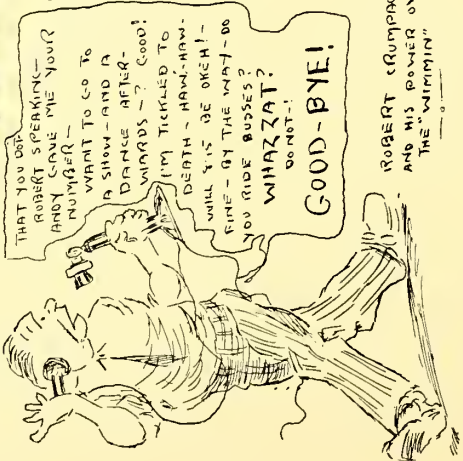 THAT YOU DOT-
ROBERT SPEAKING-
ANDY GAVE ME YOUR
NUMBER-
WANT TO GO TO
A SHOW-AND A
DANCE AFTER-
WARDS-? GOOD!
I'M TICKLED TO
DEATH-HAW-HAW-
WILL 8:15 BE OKEH!-
FINE-BY THE WAY-DO
YOU RIDE BUSSES?
WHAZZAT?
DO NOT-!
GOOD-BYE!
ROBERT CRUMPAC
AND HIS POWER OV
THE "WIMMIN"